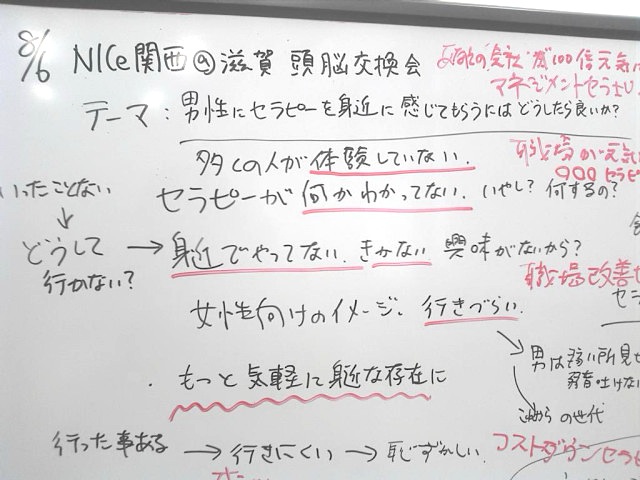 8/6 NICe関西@滋賀 頭脳交換会
あなたの会社が100倍元気に
マネジメントセラピ
テーマ:男性にセラピーを身近に感じてもらうにはどうしたら良いか?
多くの人が体験していない.
職場が元気
〇〇〇セラピ
いったことない
セラピーが何かわかってない. いやし? 何するの?
↓
どうして
行かない?
→ 身近でやってない. きかない 興味がないから?
職場改善セ
セラ
女性向けのイメージ. 行きづらい.
男は弱い所見せ
弱音吐けない
・もっと気軽に身近な存在に
これからの世代
行った事ある → 行きにくい → 恥ずかしい.
コストダウンセラピ